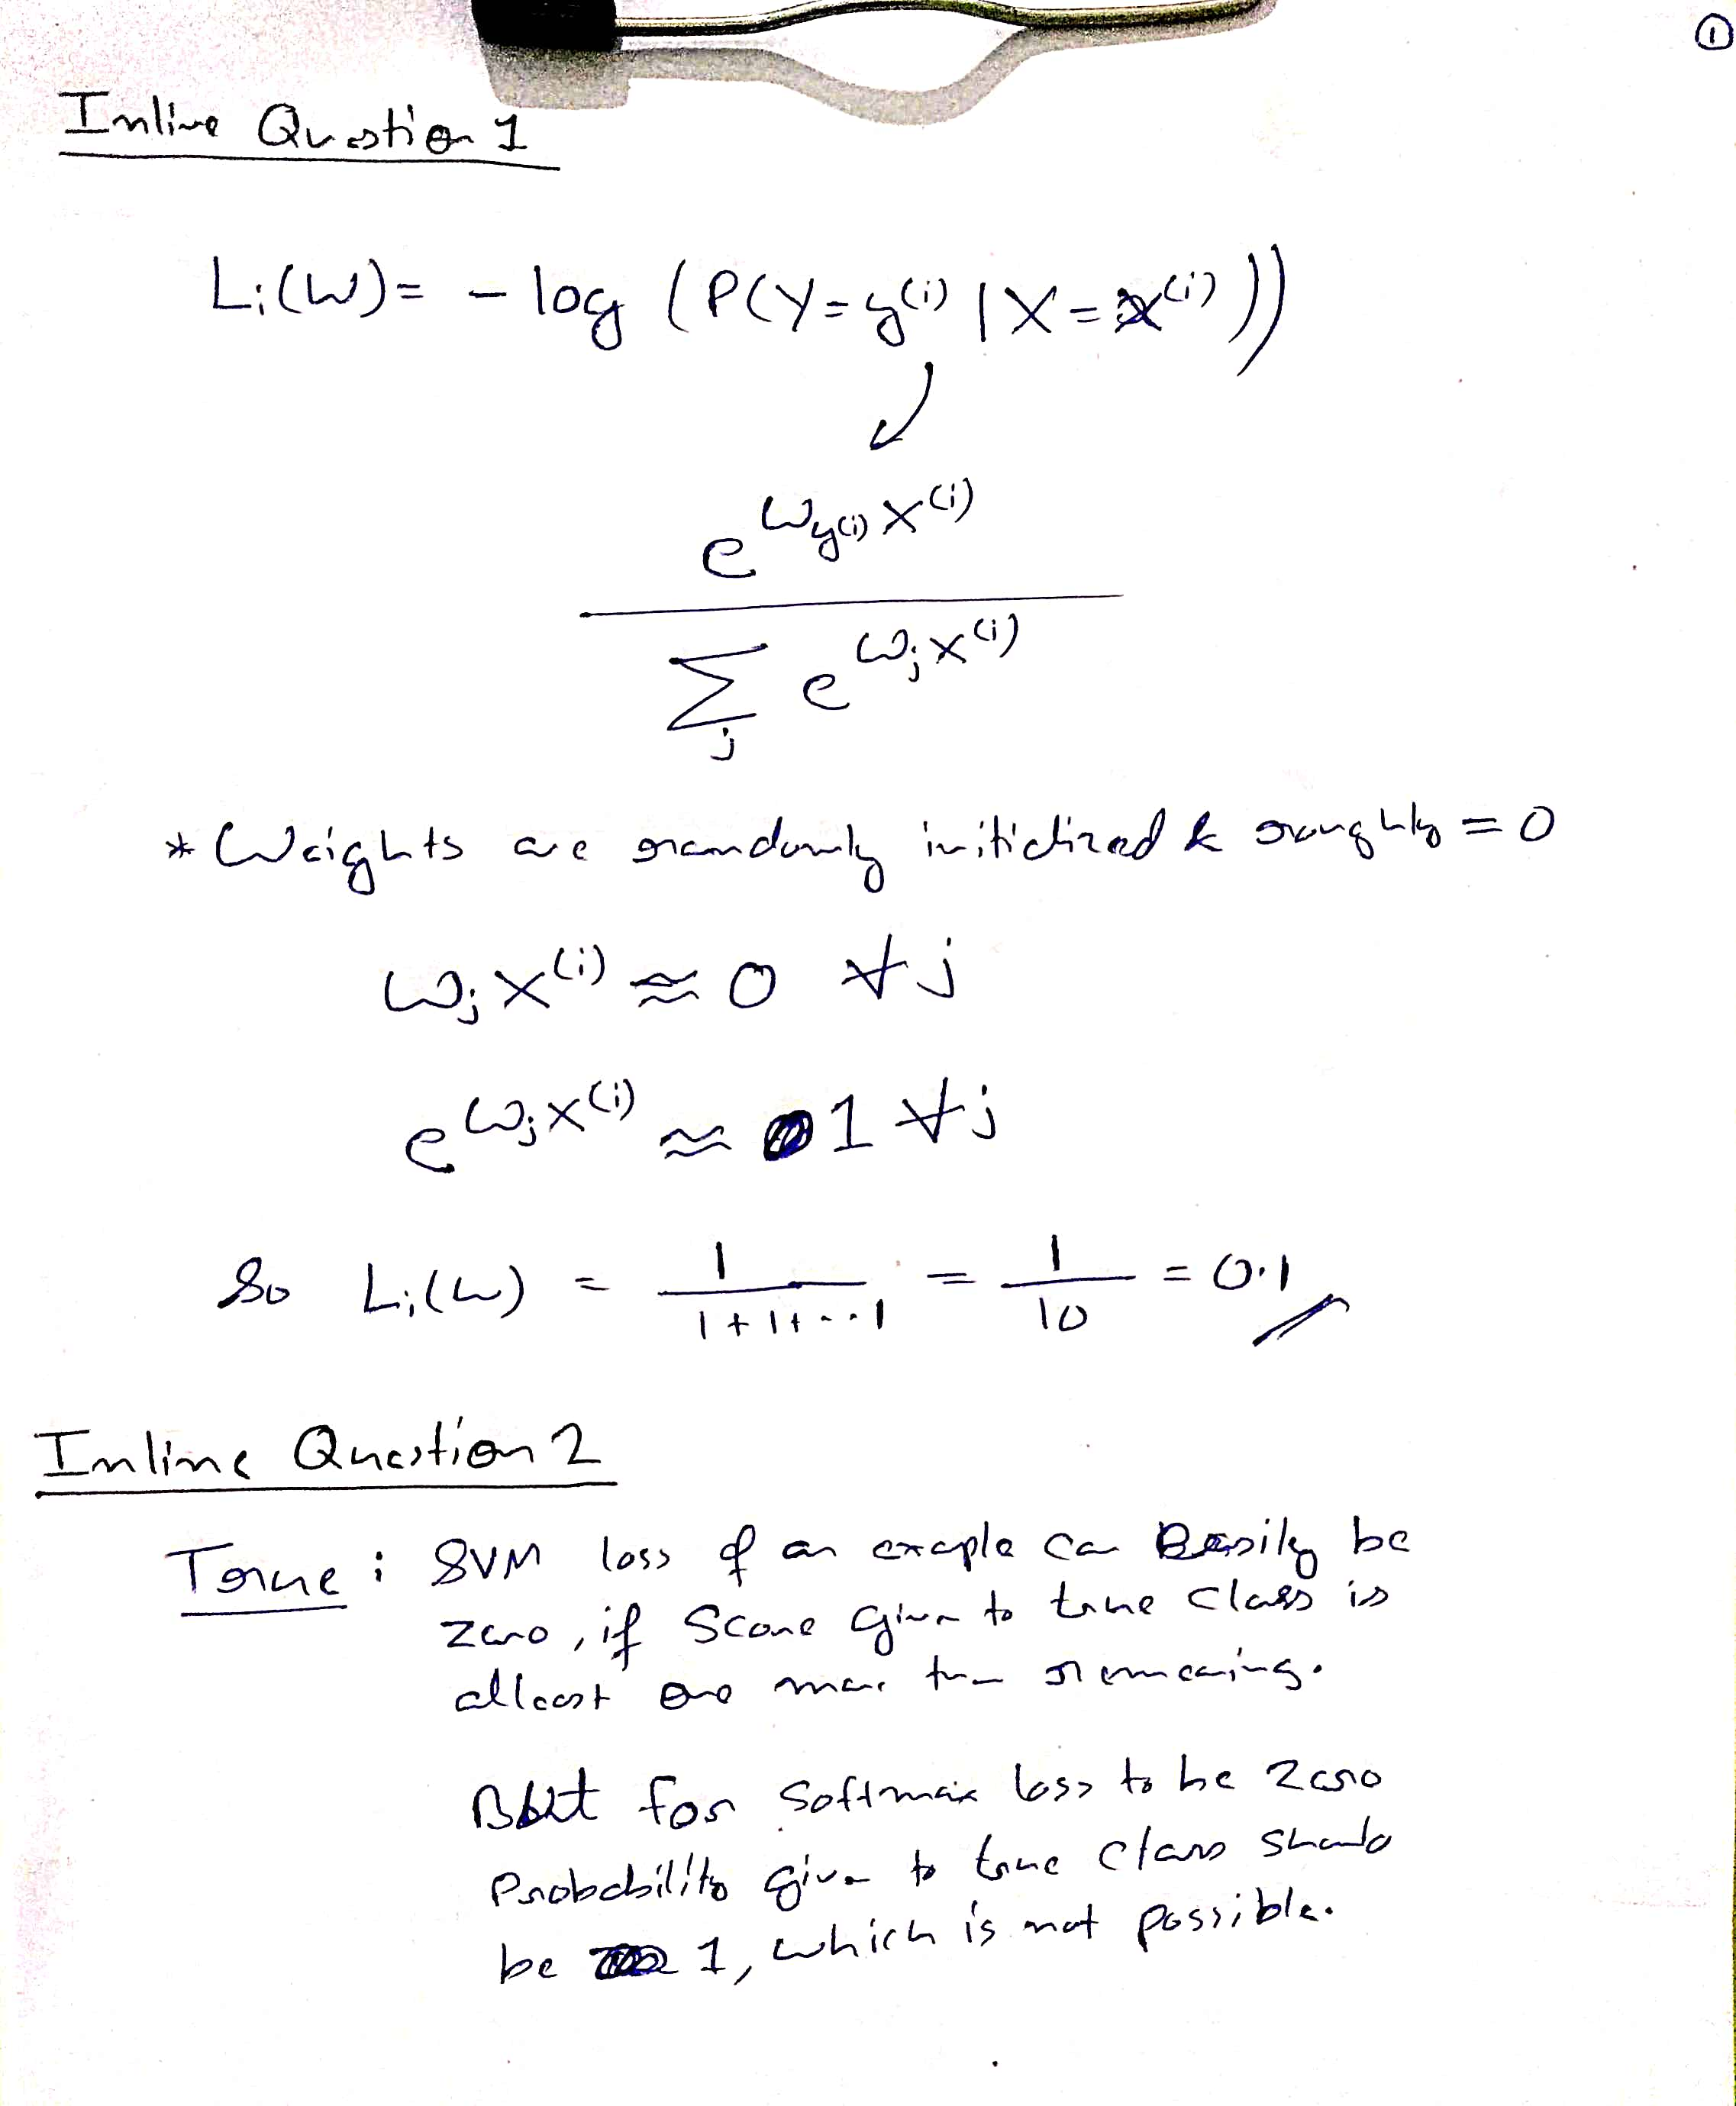 ①
Inline Question 1
Li(W) = - log (P(Y = y(i) | X = x(i)))
e^{W_{y(i)} x(i)}
Σ_j e^{W_j x(i)}
* Weights are randomly initialized & roughly = 0
W_j x(i) ≈ 0 ∀ j
e^{W_j x(i)} ≈ 1 ∀ j
So Li(W) = 1/(1+1+...1) = 1/10 = 0.1
Inline Question 2
True : SVM loss of an exaple can Easily be
zero, if Score given to true class is
atleast one more than remeaining.
But for Softmax loss to be zero
Probability given to true class should
be 1, which is not possible.